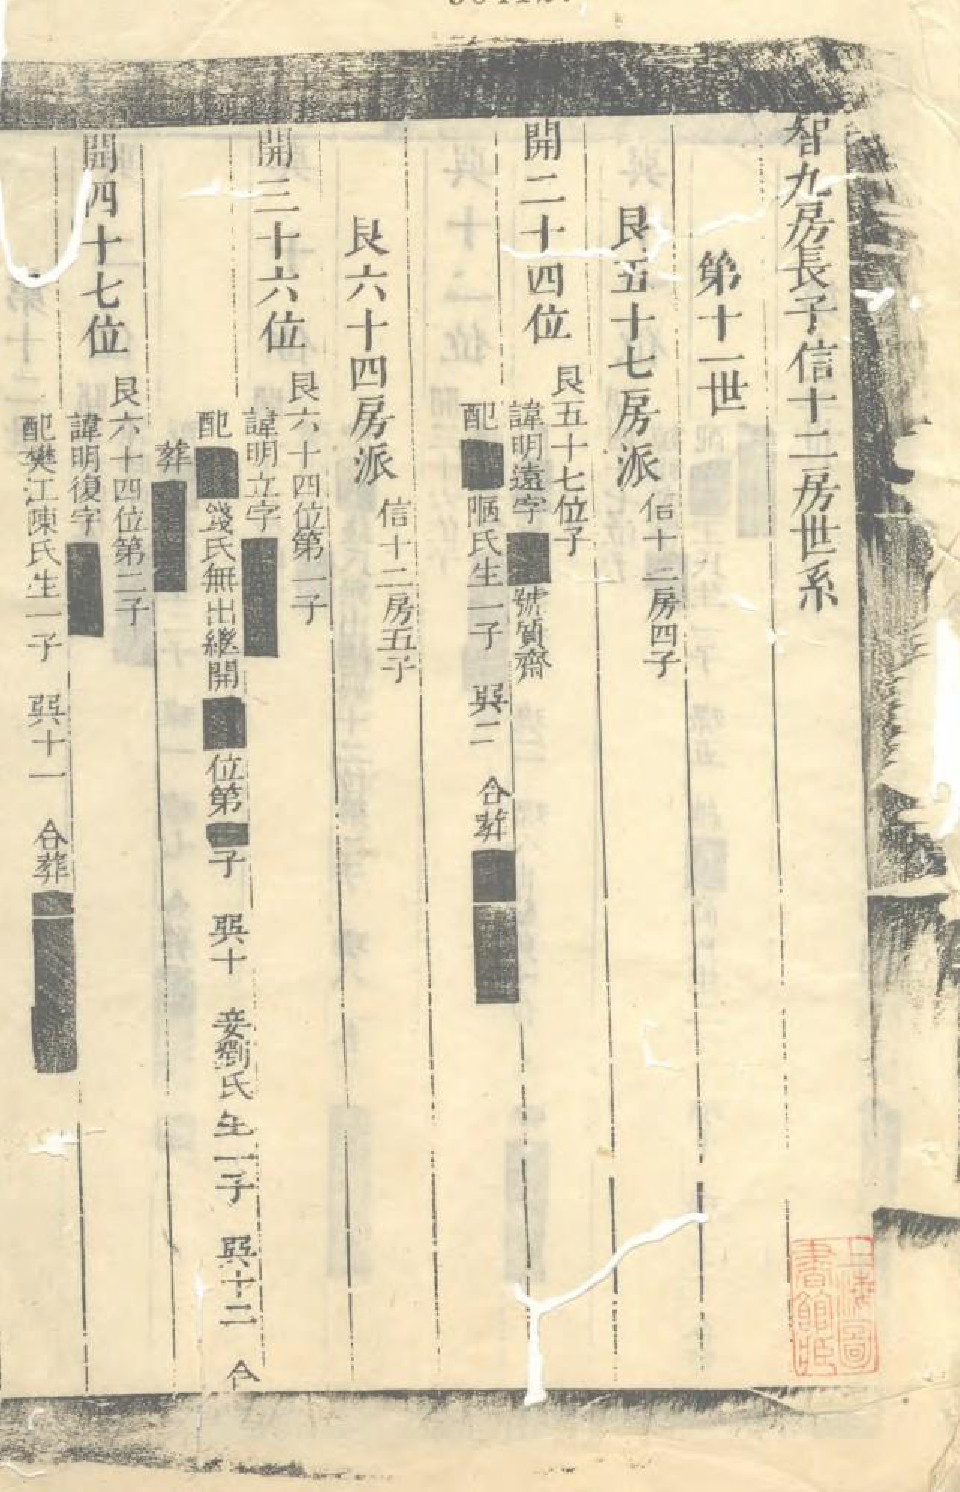 智九房長子信十二房世系
第十一世
艮五十七房派
信十二房四子
開二十四位
艮五十七位子
諱明遠字■號質齋
配■陋氏生一子 巽二 合葬■■
艮六十四房派
信十二房五子
開三十六位
艮六十四位第一子
諱明立字■
配■錢氏無出繼開■位第■子 巽十 妾劉氏生一子 巽十二 合
葬■
開四十七位
艮六十四位第二子
諱明復字■
配樊江陳氏生一子 巽十一 合葬■■
上海圖書館藏